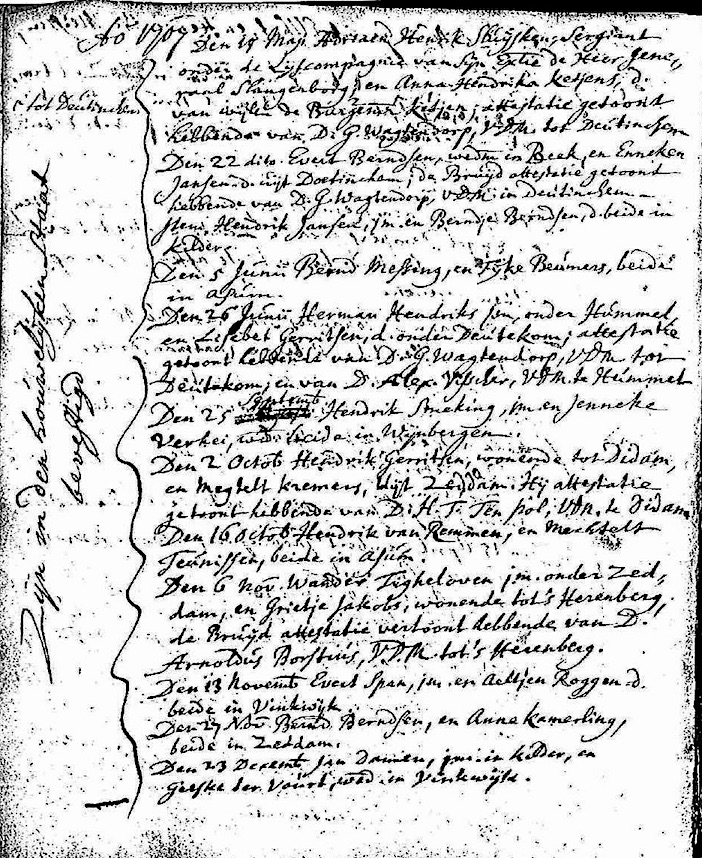 Ao 1707 Den 19 Maji Adriaen Henrik Sluÿsken, Sergiant
onder de Lÿfcompagnie van Sÿn Extie de Heer Jene,,
raal Slangenborg, en Anna Hendrika Ketjens, d.
van wÿlen de Burgem Ketjen, attestatie getoont
c tot Deutinchem
hebbende van D. G. Wagtendorp, V.D.M. tot Deutinchem
Den 22 dito. Evert Berndsen, wedm in Beek, en Enneken
Jansen. d. uÿt Doetinchem; de Bruÿd attestatie getoont
hebbende van D. G. Wagtendorp, V.D.M. in Deutinchem
Item, Hendrik Jansen, jm. en Berndje Berndsen, d. beide in
Kilder.
Den 5 Junii Bernd Messing, en Fÿke Beumers, beide
in asum.
Den 26 Junii Herman Hendriks jm, onder Hummel,
en Lisebet Gerritsen, d. onder Deutekom; attestatie
getoont hebbende van D. G. Wagtendorp, V.D.M. tot
Deutekom, en van D. Alex. Visscher, V.D.M. te Hummel
Septemb
Den 25 Hendrik Smeking, jm. en Jenneke
Verhei, wed. beide in Wÿnbergen.
Den 2 Octob Hendrik Gerritsen, wonende tot Didam,
en Megtelt Kremers, uÿt Zeddam. Hÿ attestatie
getoont hebbende van D. H. T. Ten Hol, V.D.M. te Didam
Den 16 Octob Hendrik van Remmen, en Mechtelt
Teunissen, beide in asum.
Den 6 Nov. Wander Tigheloven jm. onder Zed,,
dam, en Grietje Jakobs, wonende tot 's Herenberg,
de Bruÿd attestatie vertoont hebbende van D.
Arnoldus Borstius, V.D.M. tot 's Herenberg.
Den 13 Novemb Evert Span, jm. en Aeltjen Roggen d.
beide in Vinkwÿk
Den 27 Nov. Bernd Berndsen, en Anne Kamerling,
beide in Zeddam.
Den 23 Decemb Jan Damen, jm. in Kilder, en
Geeske ter Voort, wed in Vinkwÿk.
Zÿn in den houwelÿken Staat
bevestigd